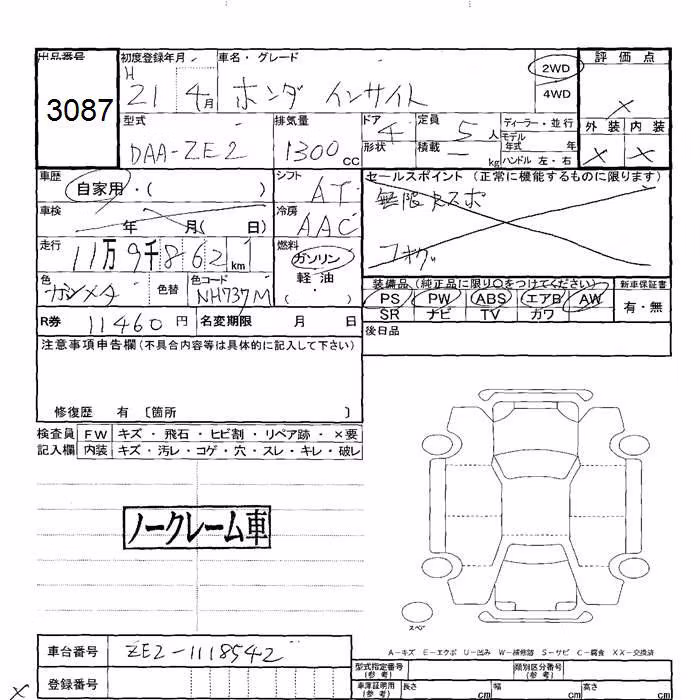 出品番号 初度登録年月 車名・グレード 2WD 評価点
3087 H 21 4月 ホンダ インサイト 4WD ×
型式 排気量 ドア 定員 ディーラー・並行 外装 内装
DAA-ZE2 1300cc 4 5人 モデル年式 年 × ×
形状 積載 ー kg ハンドル 左・右
車歴 自家用・( ) シフト AT セールスポイント (正常に機能するものに限ります)
車検 年 月( 日) 冷房 AAC 無限エスポ
走行 11万9千862km 燃料 ガソリン フォグ
軽油
( ・ )
色 ガンメタ 色替 色コード NH737M 装備品 (純正品に限り○をつけてください) 新車保証書
PS PW ABS エアB AW 有・無
SR ナビ TV カワ
R券 11460円 名変期限 月 日 後日品
注意事項申告欄(不具合内容等は具体的に記入して下さい)
修復歴 有 〔箇所 〕
検査員 FW キズ・飛石・ヒビ割・リペア跡・×要
記入欄 内装 キズ・汚レ・コゲ・穴・スレ・キレ・破レ
ノークレーム車
スペア
A-キズ E-エクボ U-凹み W-補修跡 S-サビ C-腐食 XX-交換済
車台番号 ZE2-1118542 型式指定番号(参考) 類別区分番号(参考)
登録番号 車庫証明用(参考) 長さ cm 幅 cm 高さ cm
×